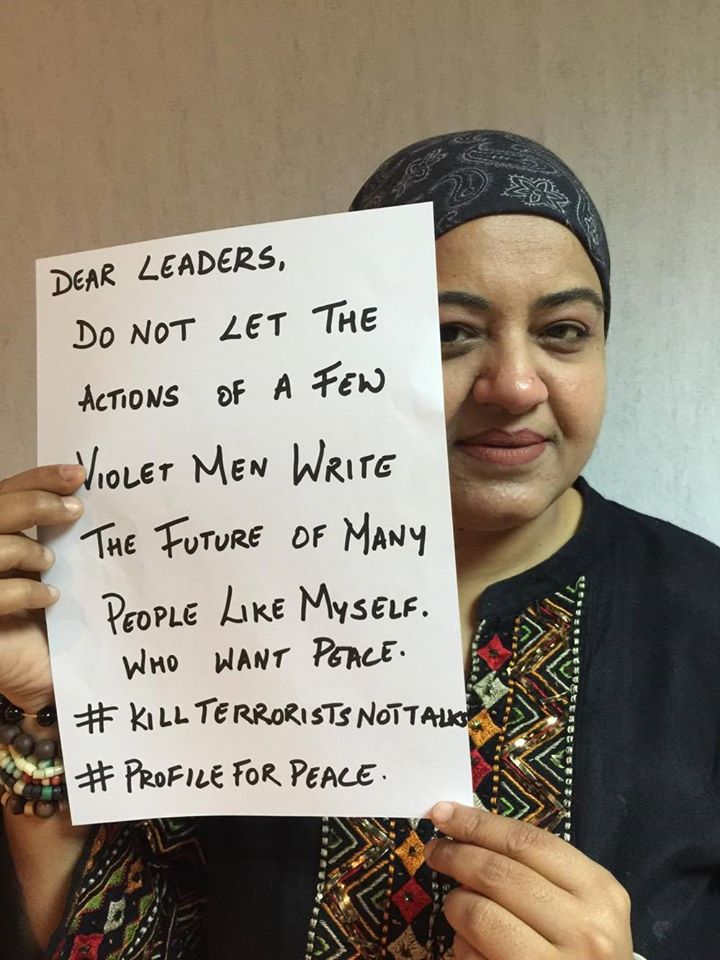 DEAR LEADERS,
DO NOT LET THE
ACTIONS OF A FEW
VIOLET MEN WRITE
THE FUTURE OF MANY
PEOPLE LIKE MYSELF.
WHO WANT PEACE.
# KILLTERRORISTSNOTTALKS
# PROFILE FOR PEACE.